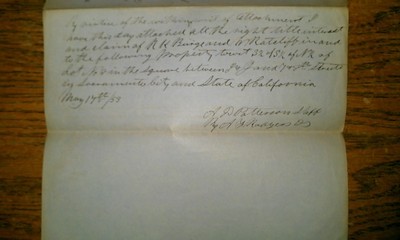 By virtue of the within writ of attachment I
have this day attached all the right title interest
and claim of R K Burge and G Ratcliff in and
to the following property to wit
Lot in the Square between I J and Streets
in Sacramento City and State of California
May 14th / 50
A. D. Patterson Shff
By A. Hudgins Ds